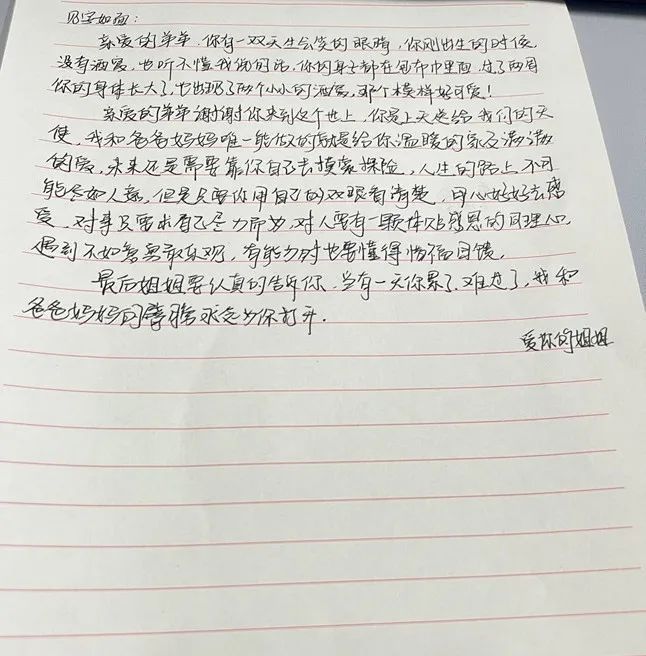 见字如面:
亲爱的弟弟,你有一双天生会笑的眼睛,你刚出生的时候,
没有酒窝,也听不懂我说的话,你的身子都在包布中里面,过了两周
你的身体长大了,也出现了两个小小的酒窝,那个模样好可爱!
亲爱的弟弟谢谢你来到这个世上,你是上天送给我们的天
使,我和爸爸妈妈唯一能做的就是给你温暖的家及满满
的爱,未来还是需要靠你自己去摸索探险,人生的路上不可
能尽如人意,但是只要你用自己的双眼看清楚,用心好好去感
受,对事只要求自己尽力而为,对人要有一颗体贴感恩的同理心,
遇到不如意勇敢乐观,有能力时也要懂得惜福回馈。
最后姐姐要认真的告诉你,当有一天你累了,难过了,我和
爸爸妈妈的臂膀永远为你打开.
爱你的姐姐